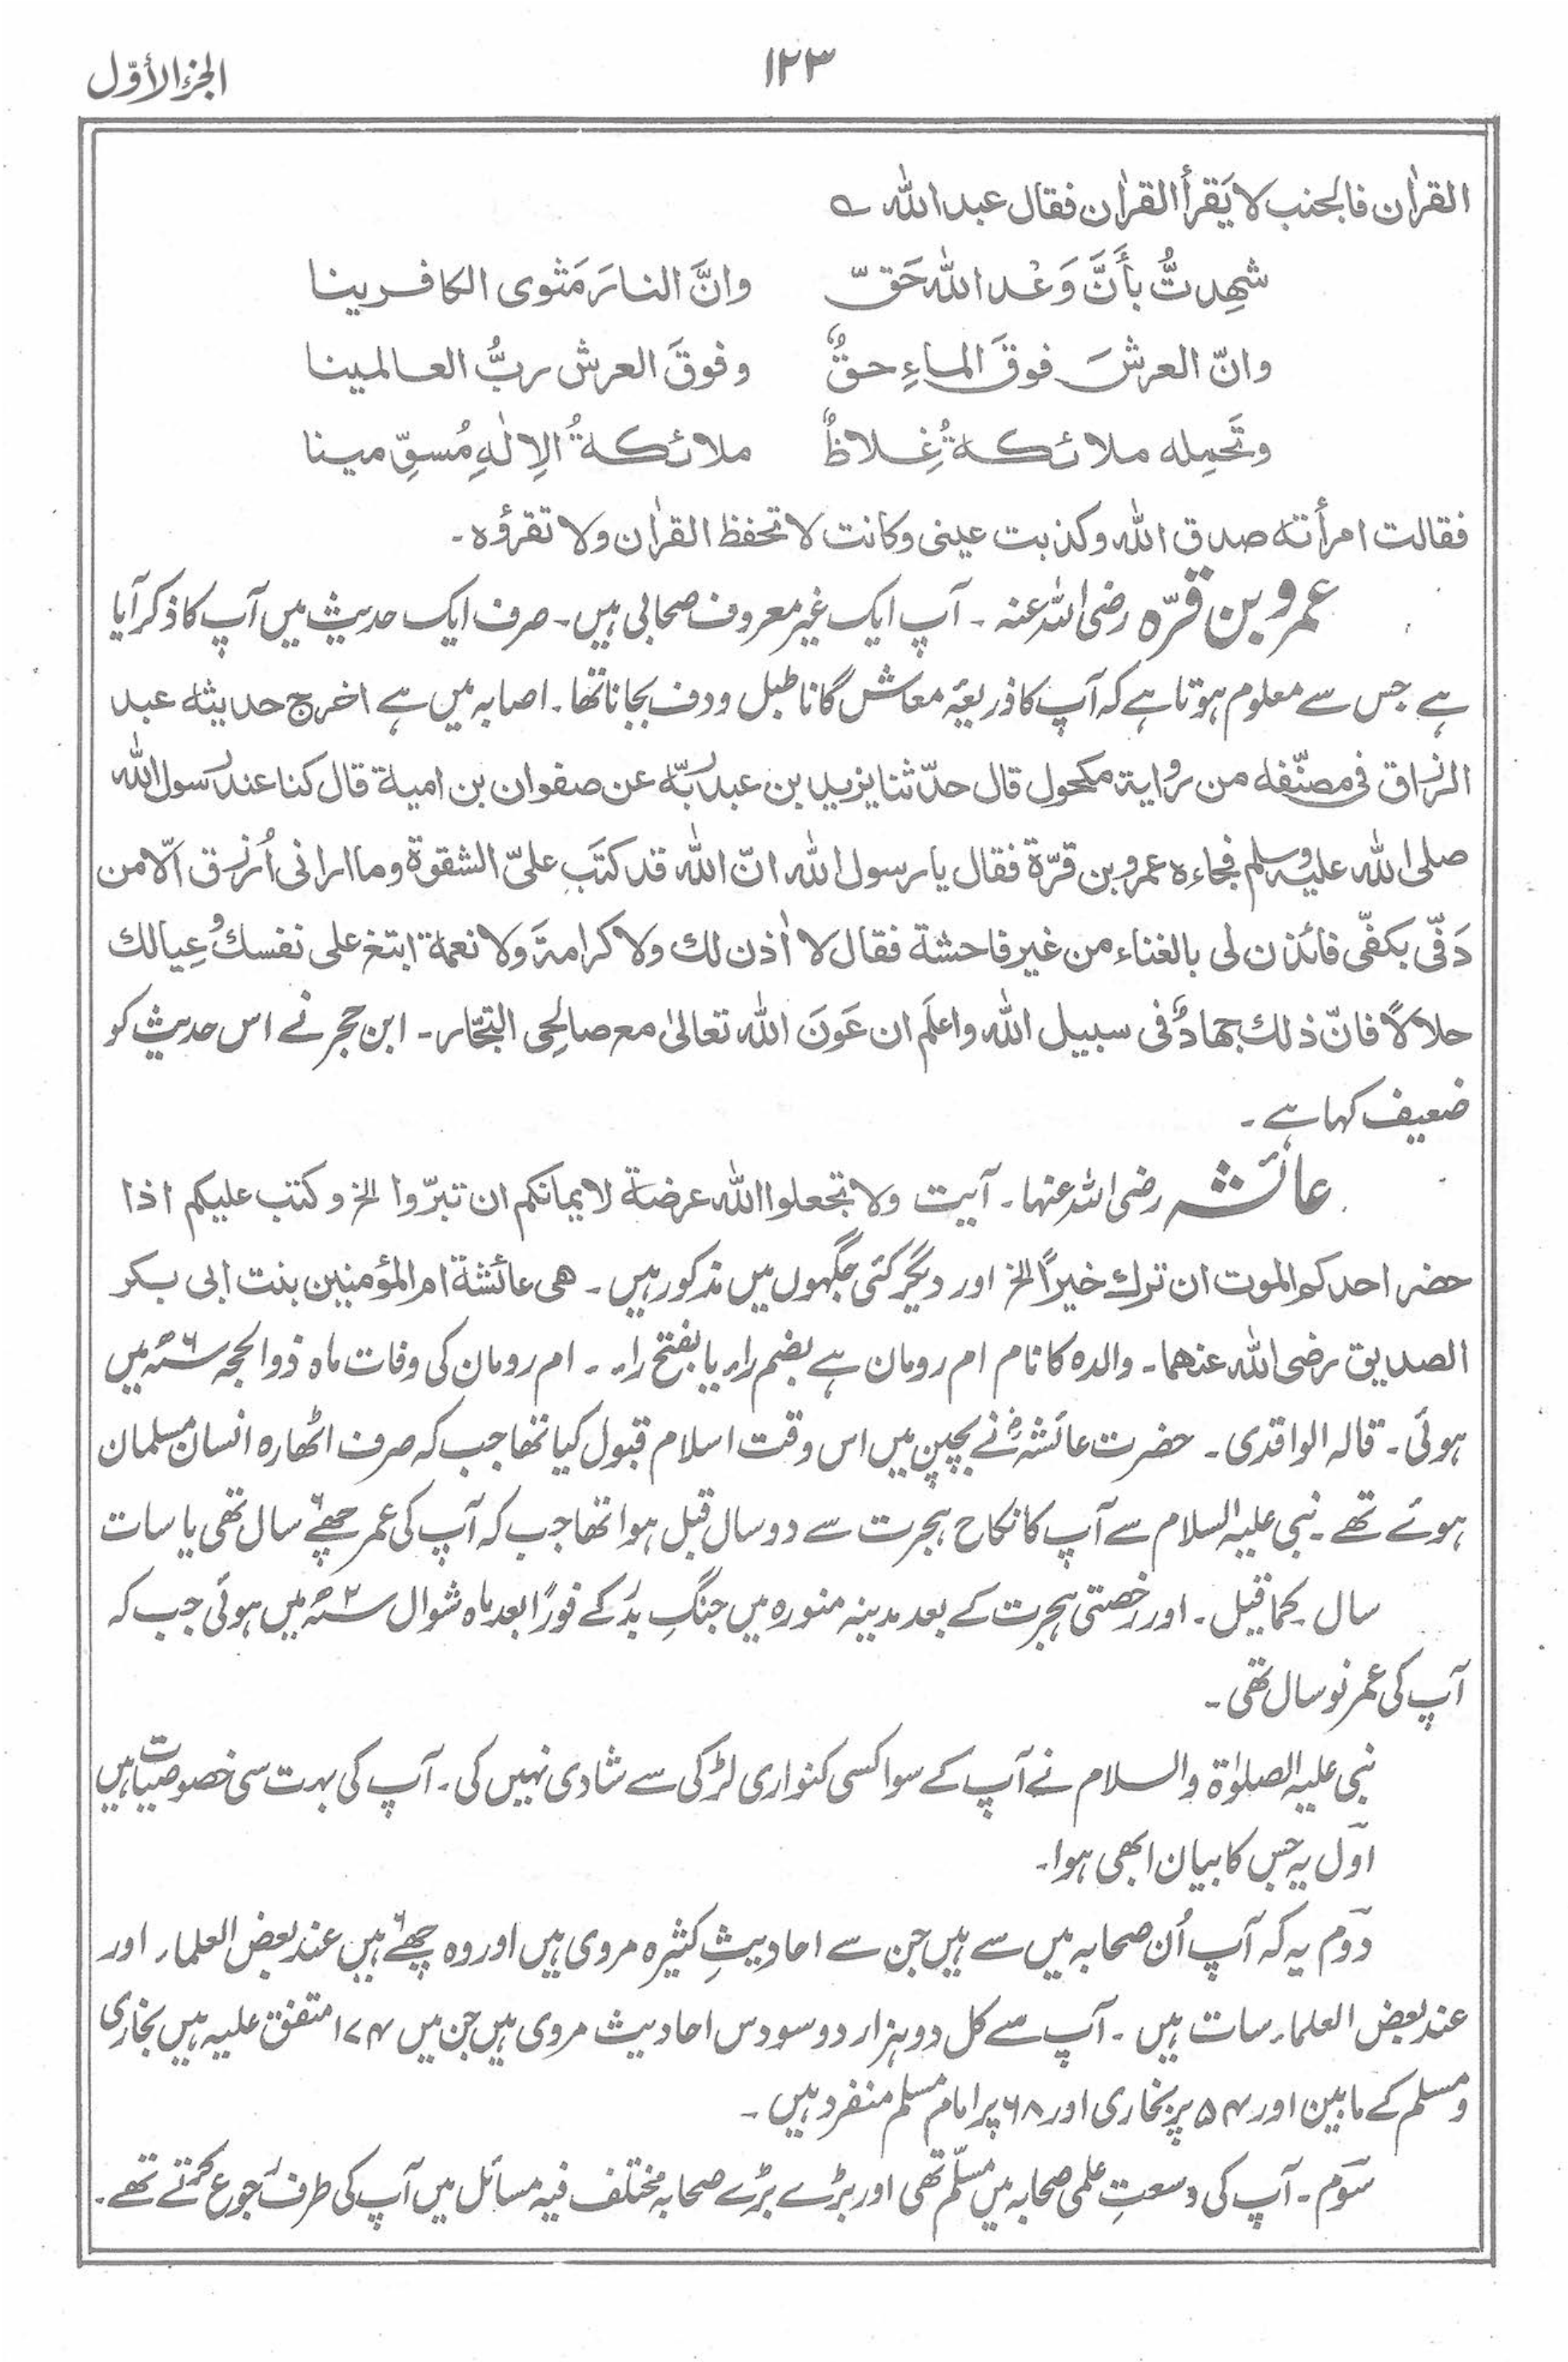 ۱۲۳
الجزء الأوّل
القرٰان فالجنب لا يَقرأ القرٰان فقال عبد اللہ ؎
شهِدتُّ بأَنَّ وَعْد اللہ حَقّ وانَّ النارَ مَثوى الكافرينا
وانّ العرشَ فوقَ الماءِ حقٌّ وفوقَ العرش ربُّ العالمينا
وتَحمِله ملائكةٌ غِلاظٌ ملائكةُ الإلٰهِ مُسوِّمينا
فقالت امرأته صدق اللہ وكذبت عينى وكانت لا تحفظ القرٰان ولا تقرؤه۔
عمرو بن قرّہ رضی اللہ عنہ ۔ آپ ایک غیر معروف صحابی ہیں۔ صرف ایک حدیث میں آپ کا ذکر آیا
ہے جس سے معلوم ہوتا ہے کہ آپ کا ذریعۂ معاش گانا طبل و دف بجانا تھا۔ اصابہ میں ہے اخرج حديثه عبد
الرزاق فى مصنّفه من رواية مكحول قال حدّثنا يزيد بن عبد ربّه عن صفوان بن امية قال كنا عند رسول اللہ
صلى اللہ عليه وسلم فجاءه عمرو بن قرّة فقال يا رسول اللہ انّ اللہ قد كتَب علىّ الشقوة وما ارانى اُرزق الّا من
دَفّى بكفّى فائذن لى بالغناء من غير فاحشة فقال لا اٰذن لك ولا كرامةَ ولا نعمة ابتغ على نفسك وعِيالك
حلالًا فانّ ذلك جهادٌ فى سبيل اللہ واعلَم ان عَونَ اللہ تعالىٰ مع صالِحى التجّار۔ ابن حجر نے اس حدیث کو
ضعیف کہا ہے۔
عائشہ رضی اللہ عنہا۔ آیت ولا تجعلوا اللہ عرضة لايمانكم ان تبرّوا الخ و كتب عليكم اذا
حضر احدكم الموت ان ترك خيراً الخ اور دیگر کئی جگہوں میں مذکور ہیں۔ هى عائشة ام المؤمنين بنت ابى بكر
الصديق رضى اللہ عنهما۔ والدہ کا نام ام رومان ہے بضم راء یا بفتح راء۔ ام رومان کی وفات ماہ ذوالحجہ ۶ھ میں
ہوئی۔ قالہ الواقدی۔ حضرت عائشہؓ نے بچپن میں اس وقت اسلام قبول کیا تھا جب کہ صرف اٹھارہ انسان مسلمان
ہوئے تھے۔ نبی علیہ السلام سے آپ کا نکاح ہجرت سے دو سال قبل ہوا تھا جب کہ آپ کی عمر چھ۶ سال تھی یا سات
سال کما قیل۔ اور رخصتی ہجرت کے بعد مدینہ منورہ میں جنگِ بدر کے فورًا بعد ماہ شوال ۲ھ میں ہوئی جب کہ
آپ کی عمر نو سال تھی۔
نبی علیہ الصلوٰۃ والسلام نے آپ کے سوا کسی کنواری لڑکی سے شادی نہیں کی۔ آپ کی بہت سی خصوصیات ہیں
اوّل یہ جس کا بیان ابھی ہوا۔
دوّم یہ کہ آپ اُن صحابہ میں سے ہیں جن سے احادیثِ کثیرہ مروی ہیں اور وہ چھ۶ ہیں عند بعض العلماء اور
عند بعض العلماء سات ہیں۔ آپ سے کل دو ہزار دو سو دس احادیث مروی ہیں جن میں ۱۷۴ متفق علیہ ہیں بخاری
و مسلم کے مابین اور ۵۴ پر بخاری اور ۶۸ پر امام مسلم منفرد ہیں۔
سوّم۔ آپ کی وسعتِ علمی صحابہ میں مسلّم تھی اور بڑے بڑے صحابہ مختلف فیہ مسائل میں آپ کی طرف رجوع کرتے تھے۔